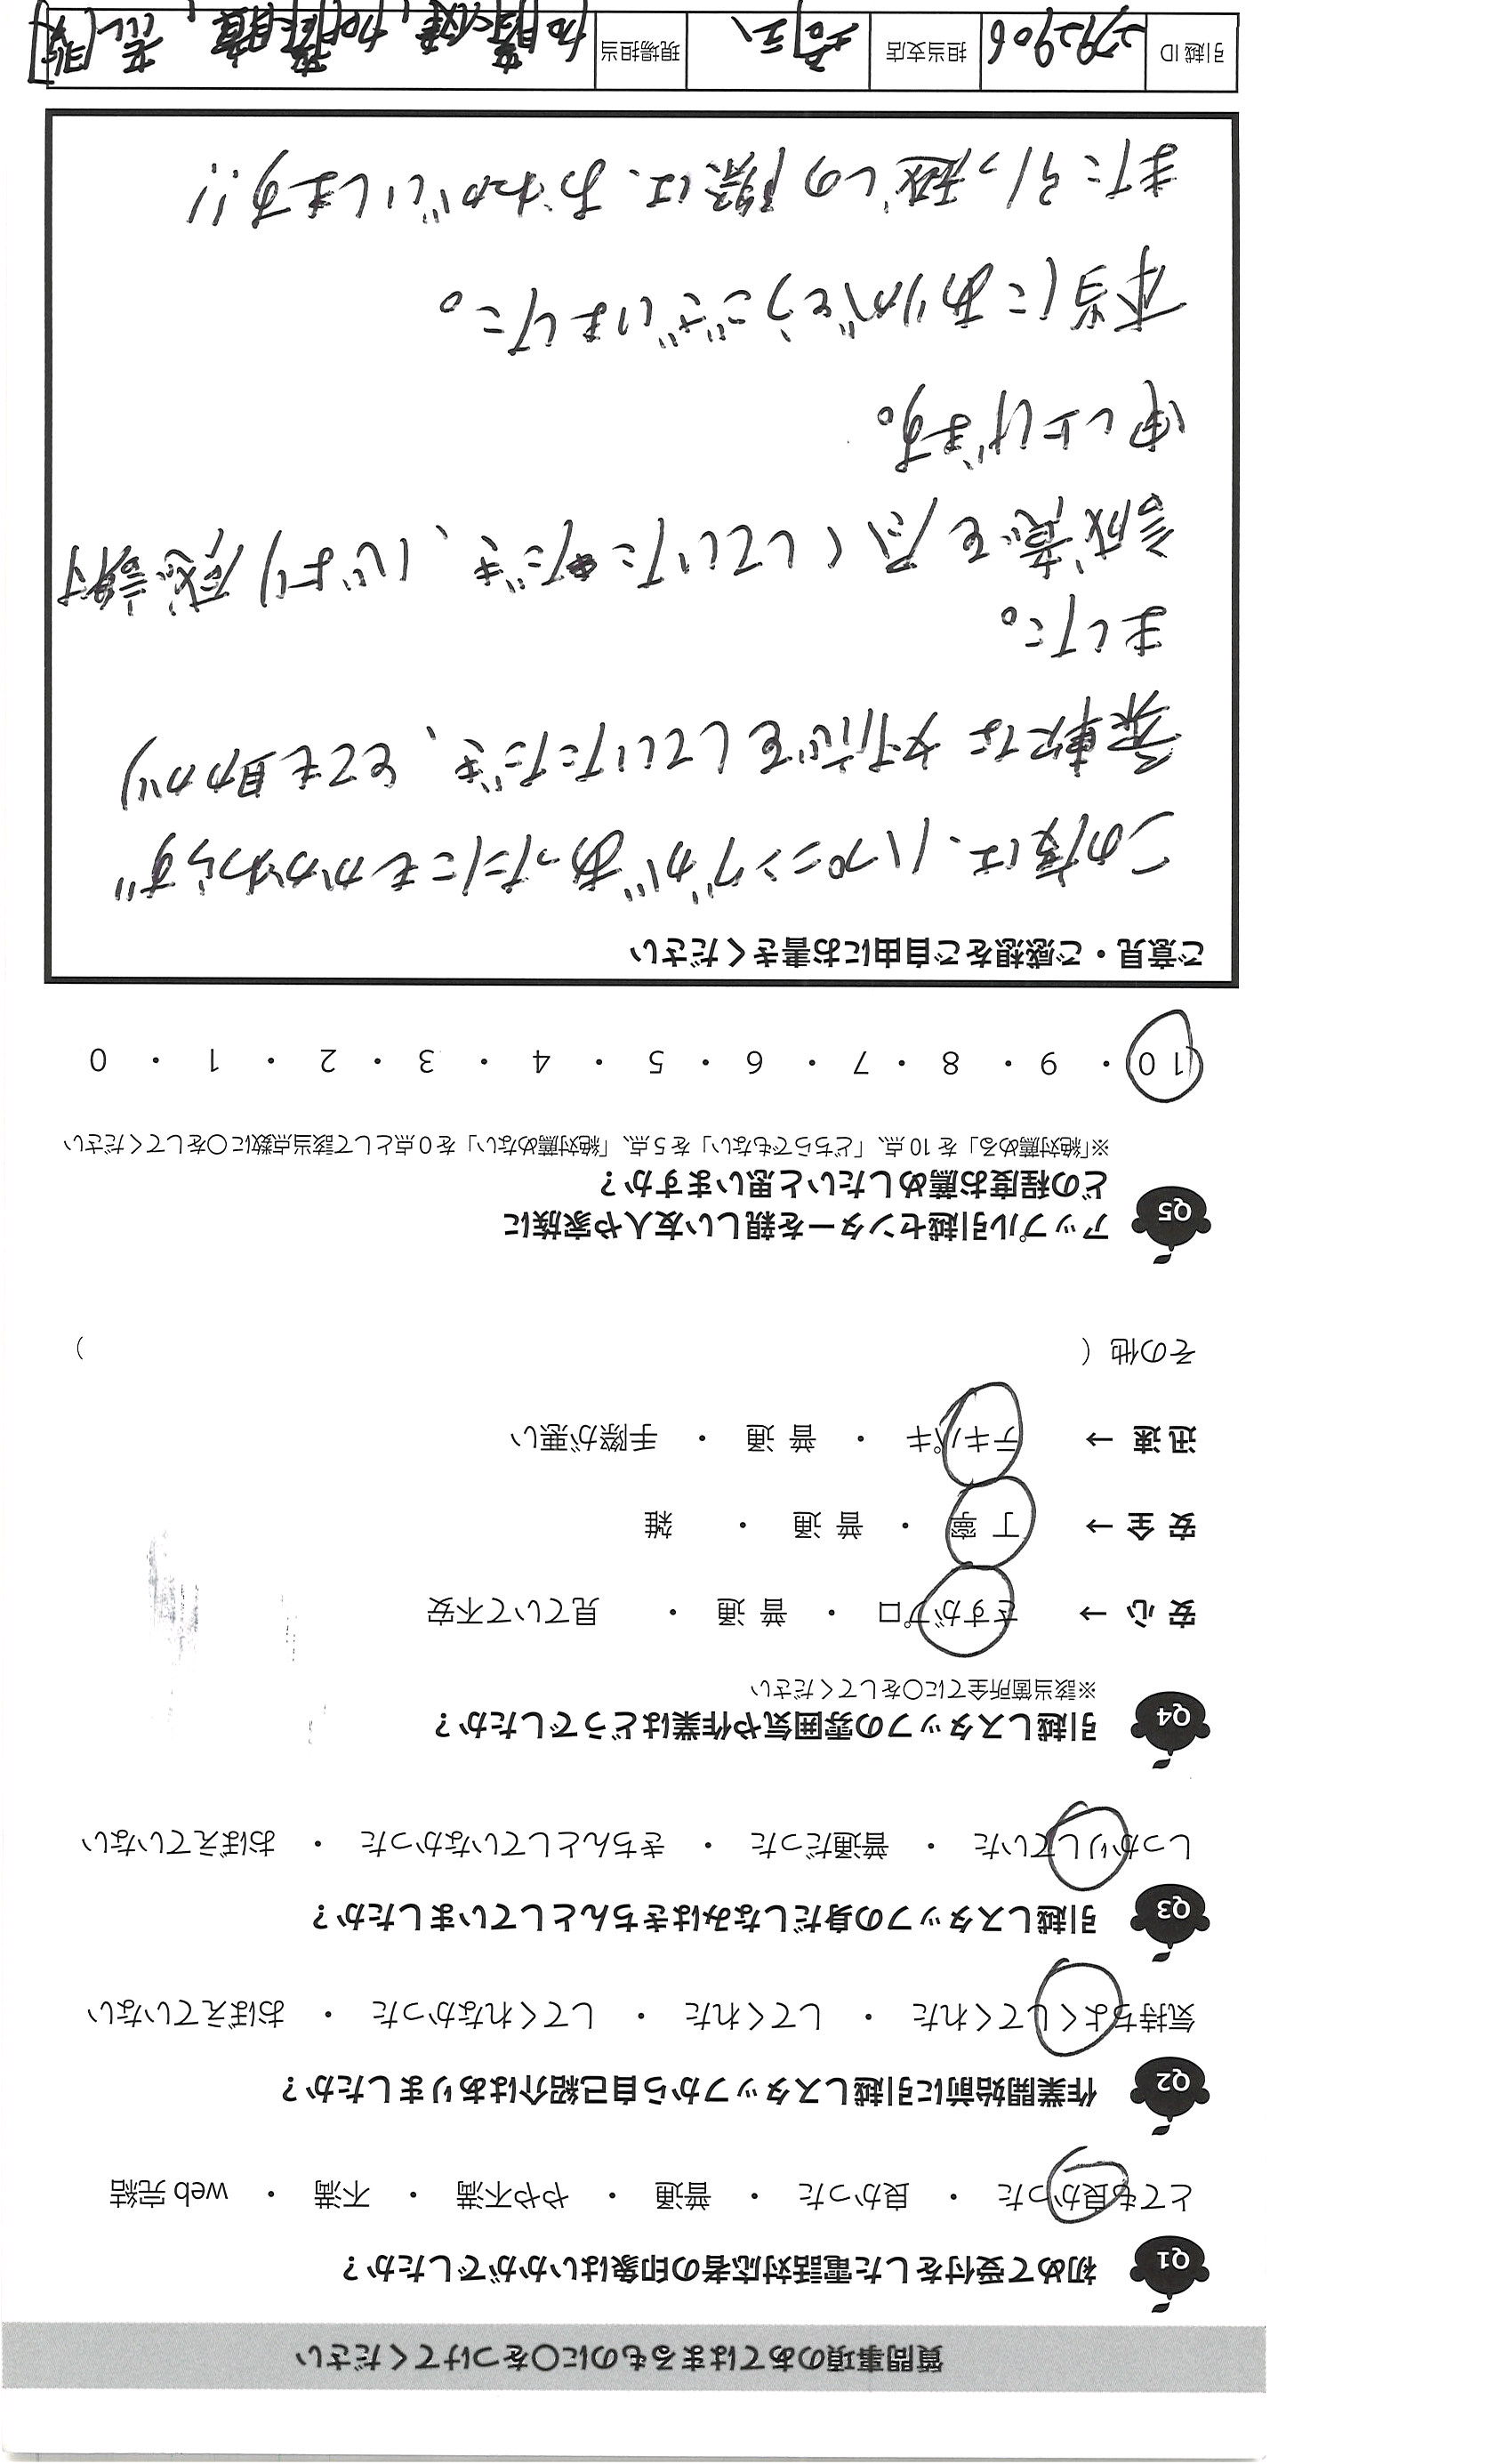 質問事項のあてはまるものに○をつけてください
Q1 初めて受付をした電話対応者の印象はいかがでしたか？
とても良かった ・ 良かった ・ 普通 ・ やや不満 ・ 不満 ・ web 完結
Q2 作業開始前に引越しスタッフから自己紹介はありましたか？
気持ちよくしてくれた ・ してくれた ・ してくれなかった ・ おぼえていない
Q3 引越しスタッフの身だしなみはきちんとしていましたか？
しっかりしていた ・ 普通だった ・ きちんとしていなかった ・ おぼえていない
Q4 引越しスタッフの雰囲気や作業はどうでしたか？
※該当箇所全てに○をしてください
安 心 → さすがプロ ・ 普 通 ・ 見ていて不安
安 全 → 丁 寧 ・ 普 通 ・ 雑
迅 速 → テキパキ ・ 普 通 ・ 手際が悪い
その他（ ）
Q5 アップル引越センターを親しい友人や家族に
どの程度お薦めしたいと思いますか？
※「絶対薦める」を 10 点、「どちらでもない」を 5 点、「絶対薦めない」を 0 点として該当点数に○をしてください
10 ・ 9 ・ 8 ・ 7 ・ 6 ・ 5 ・ 4 ・ 3 ・ 2 ・ 1 ・ 0
ご意見・ご感想をご自由にお書きください
この度は、ハプニングがあったにもかかわらず
柔軟な対応をしていただき、とても助かり
ました。
誠意を尽くしていただき、心より感謝
申し上げます。
本当にありがとうございました。
また引っ越しの際は、おねがいします!!
引越 ID 2792906 担当支店 埼玉 現場担当